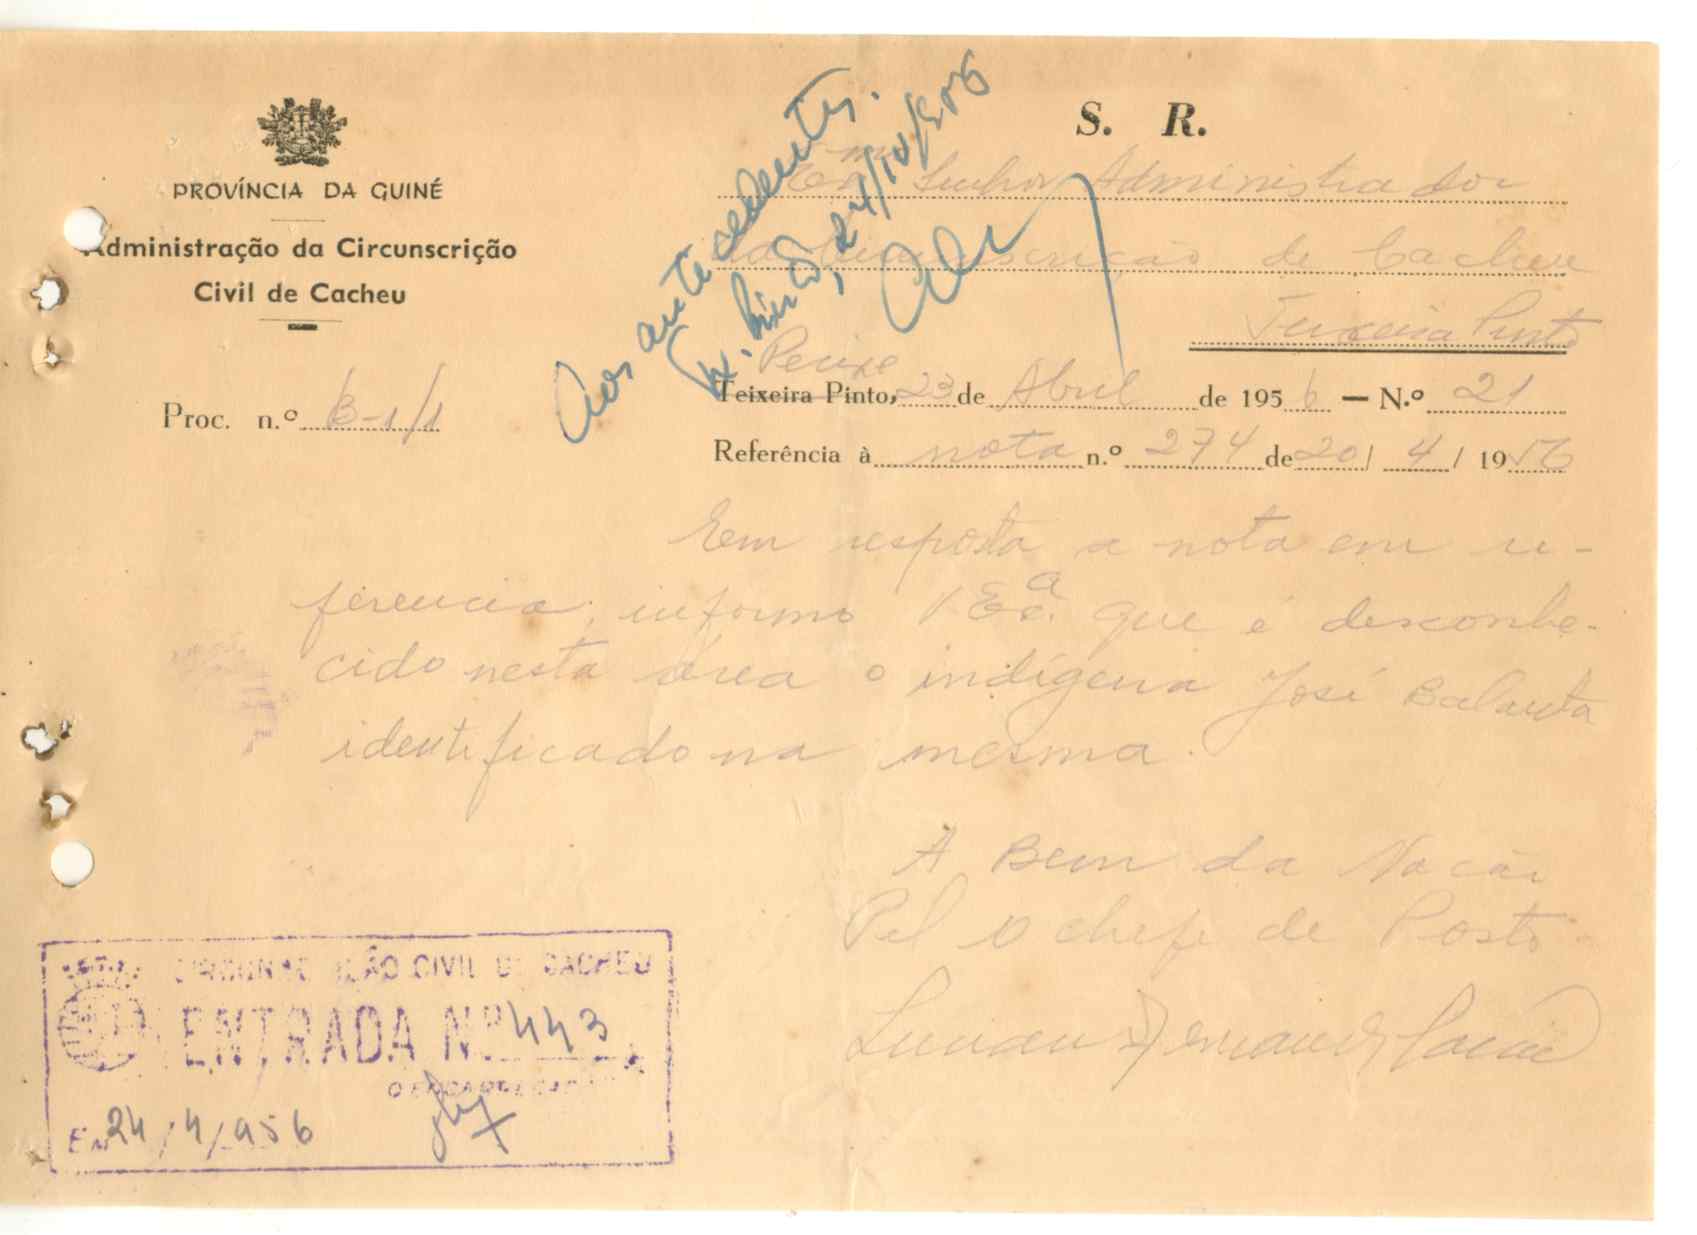 PROVÍNCIA DA GUINÉ
Administração da Circunscrição
Civil de Cacheu
Proc. n.º B-1/1
Aos antecedentes.
S. R.
Senhor Administrador
da Circunscrição de Cacheu
Teixeira Pinto
Pecixe
Teixeira Pinto, 23 de Abril de 1956 — N.º 21
Referência à nota n.º 274 de 20/ 4 / 1956
Em resposta a nota em re-
ferencia, informo V Exª. que é desconhe-
cido nesta área o indígena José Balanta
identificado na mesma.
A Bem da Nação
Pel O chefe de Posto
CIRCUNSCRIÇÃO CIVIL DE CACHEU
ENTRADA N.º 443
EM 24/4/956